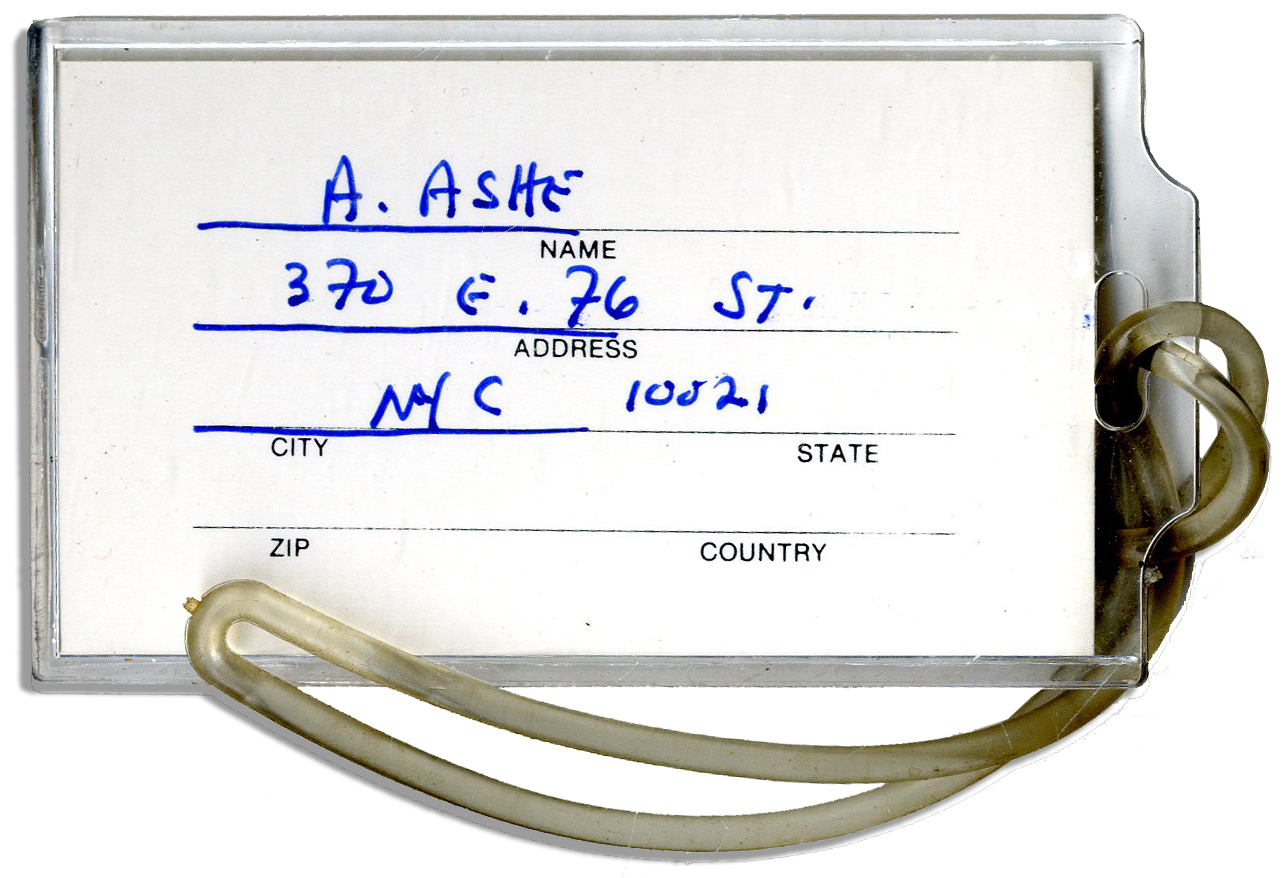 A. ASHE
NAME
370 E. 76 ST.
ADDRESS
NYC 10021
CITY STATE
ZIP COUNTRY